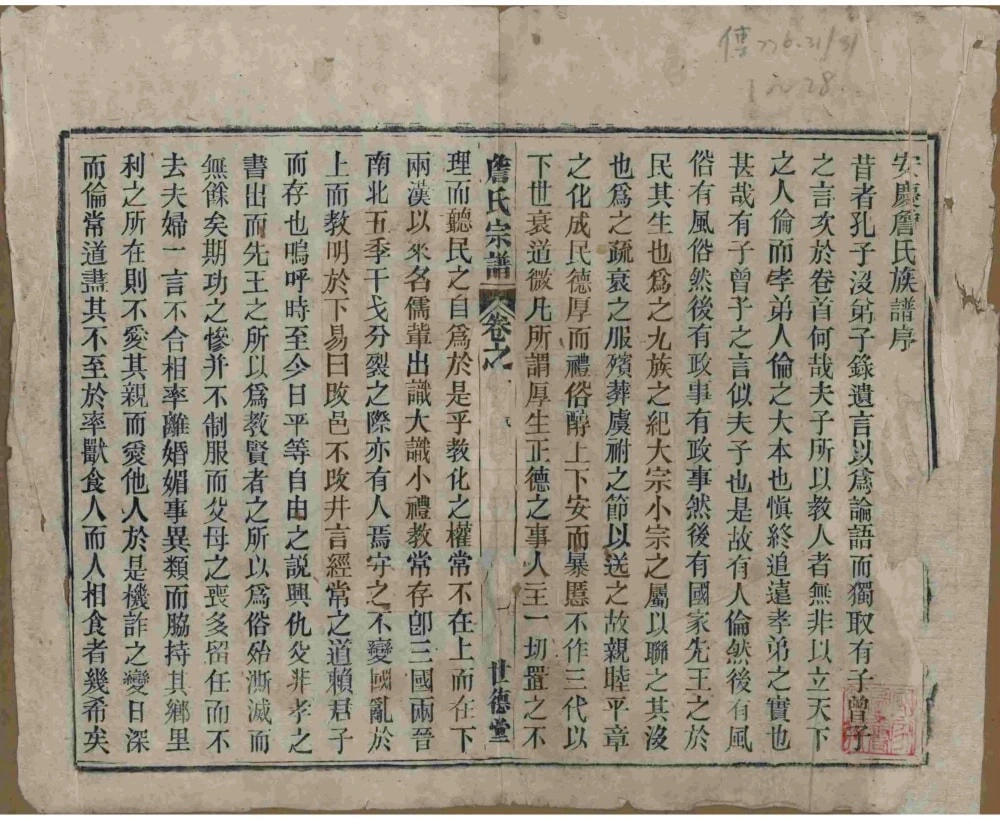 傳 776.31/31
1228
安慶詹氏族譜序
昔者孔子沒弟子錄遺言以爲論語而獨取有子曾子
之言次於卷首何哉夫子所以教人者無非以立天下
之人倫而孝弟人倫之大本也愼終追遠孝弟之實也
甚哉有子曾子之言似夫子也是故有人倫然後有風
俗有風俗然後有政事有政事然後有國家先王之於
民其生也爲之九族之紀大宗小宗之屬以聯之其沒
也爲之疏衰之服殯葬虞祔之節以送之故親睦平章
之化成民德厚而禮俗醇上下安而暴慝不作三代以
下世衰道微凡所謂厚生正德之事人主一切置之不
詹氏宗譜 卷之 世德堂
理而聽民之自爲於是乎教化之權常不在上而在下
兩漢以來名儒輩出識大識小禮教常存卽三國兩晉
南北五季干戈分裂之際亦有人焉守之不變國亂於
上而教明於下易曰改邑不改井言經常之道賴君子
而存也嗚呼時至今日平等自由之説興仇父非孝之
書出而先王之所以爲教賢者之所以爲俗殆澌滅而
無餘矣期功之慘并不制服而父母之喪多留任而不
去夫婦一言不合相率離婚媚事異類而脇持其鄉里
利之所在則不愛其親而愛他人於是機詐之變日深
而倫常道盡其不至於率獸食人而人相食者幾希矣